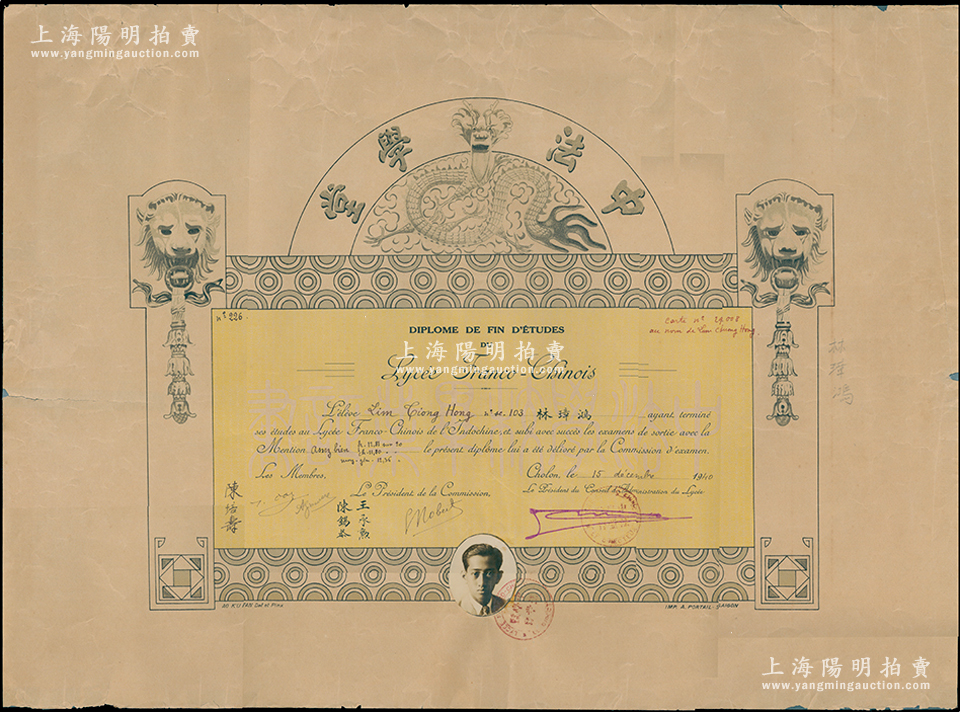 上海陽明拍賣
www.yangmingauction.com
中法學堂
nº 226.
DIPLOME DE FIN D'ÉTUDES
DU
Lycée Franco-Chinois
carte nº 24.008
au nom de Lim Chuong Hong.
上海陽明拍賣
www.yangmingauction.com
L'élève Lim Ciong Hong nº de 103 林瑋鴻 ayant terminé
ses études au Lycée Franco-Chinois de l'Indochine, et subi avec succès les examens de sortie avec la
Mention assez bien le présent diplôme lui a été délivré par la Commission d'examen.
Les Membres, Cholon, le 15 décembre 1940
Le Président de la Commission, Le Président du Conseil d'Administration du Lycée
王承烈
陳錫恭
IMP. A. PORTAIL - SAIGON
上海陽明拍賣
www.yangmingauction.com